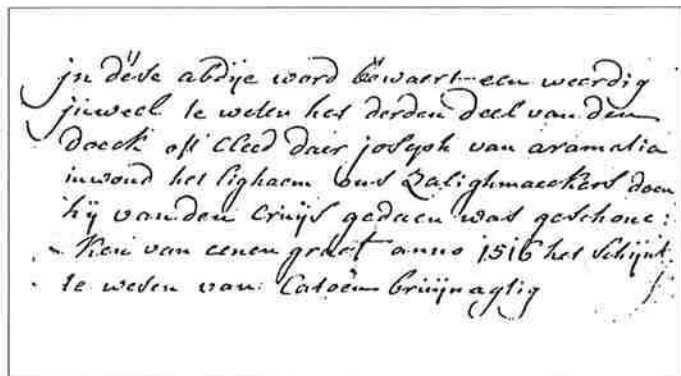 jn dese abdije word bewaert een weerdig
juweel te weten het derden deel van den
doeck oft cleed dair joseph van aramatia
inwond het lighaem ons Zalighmaeckers doen
hij van den cruijs gedaen was geschone:
Ken van eenen graef anno 1516 het schijnt
te wesen van Catoen bruijnagtig